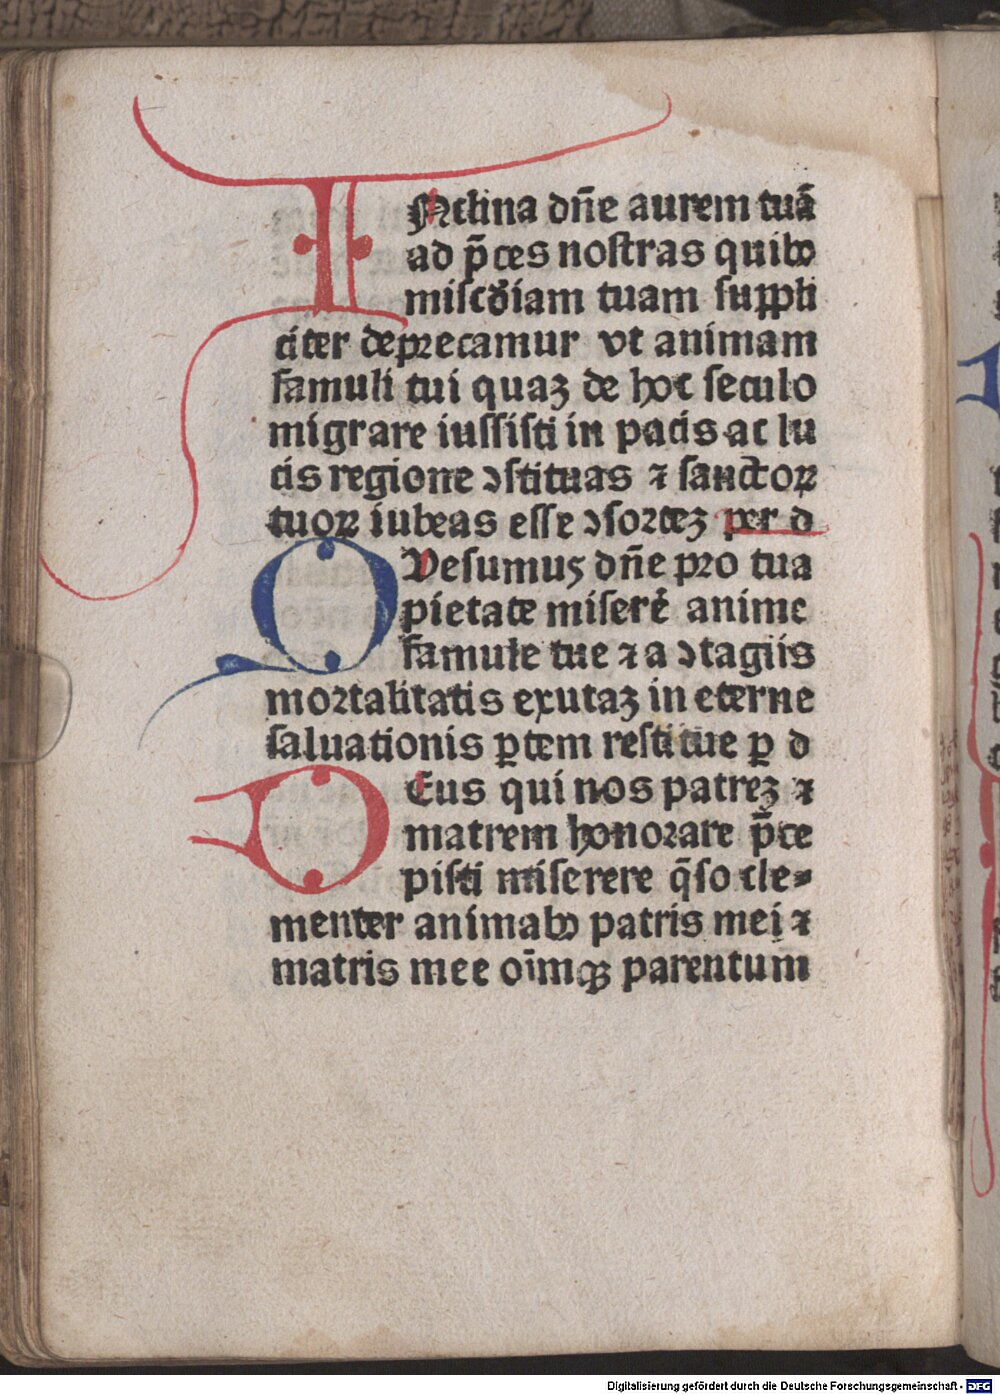 INclina dn̄e aurem tuā
ad p̄ces nostras quibꝰ
misc̄diam tuam suppli
citer deprecamur vt animam
famuli tui quaꝫ de hoc seculo
migrare iussisti in pacis ac lu
cis regione ꝯstituas ⁊ sanctoꝝ
tuoꝝ iubeas esse ꝯsorteꝫ per d
QVesumus dn̄e pro tua
pietate miserē anime
famule tue ⁊ a ꝯtagiis
mortalitatis exutaꝫ in eterne
saluationis ꝑtem restitue ꝑ d
DEus qui nos patreꝫ ⁊
matrem honorare p̄ce
pisti miserere q̄so cle⸗
menter animabꝰ patris mei ⁊
matris mee oīmqꝫ parentum
Digitalisierung gefördert durch die Deutsche Forschungsgemeinschaft - DFG